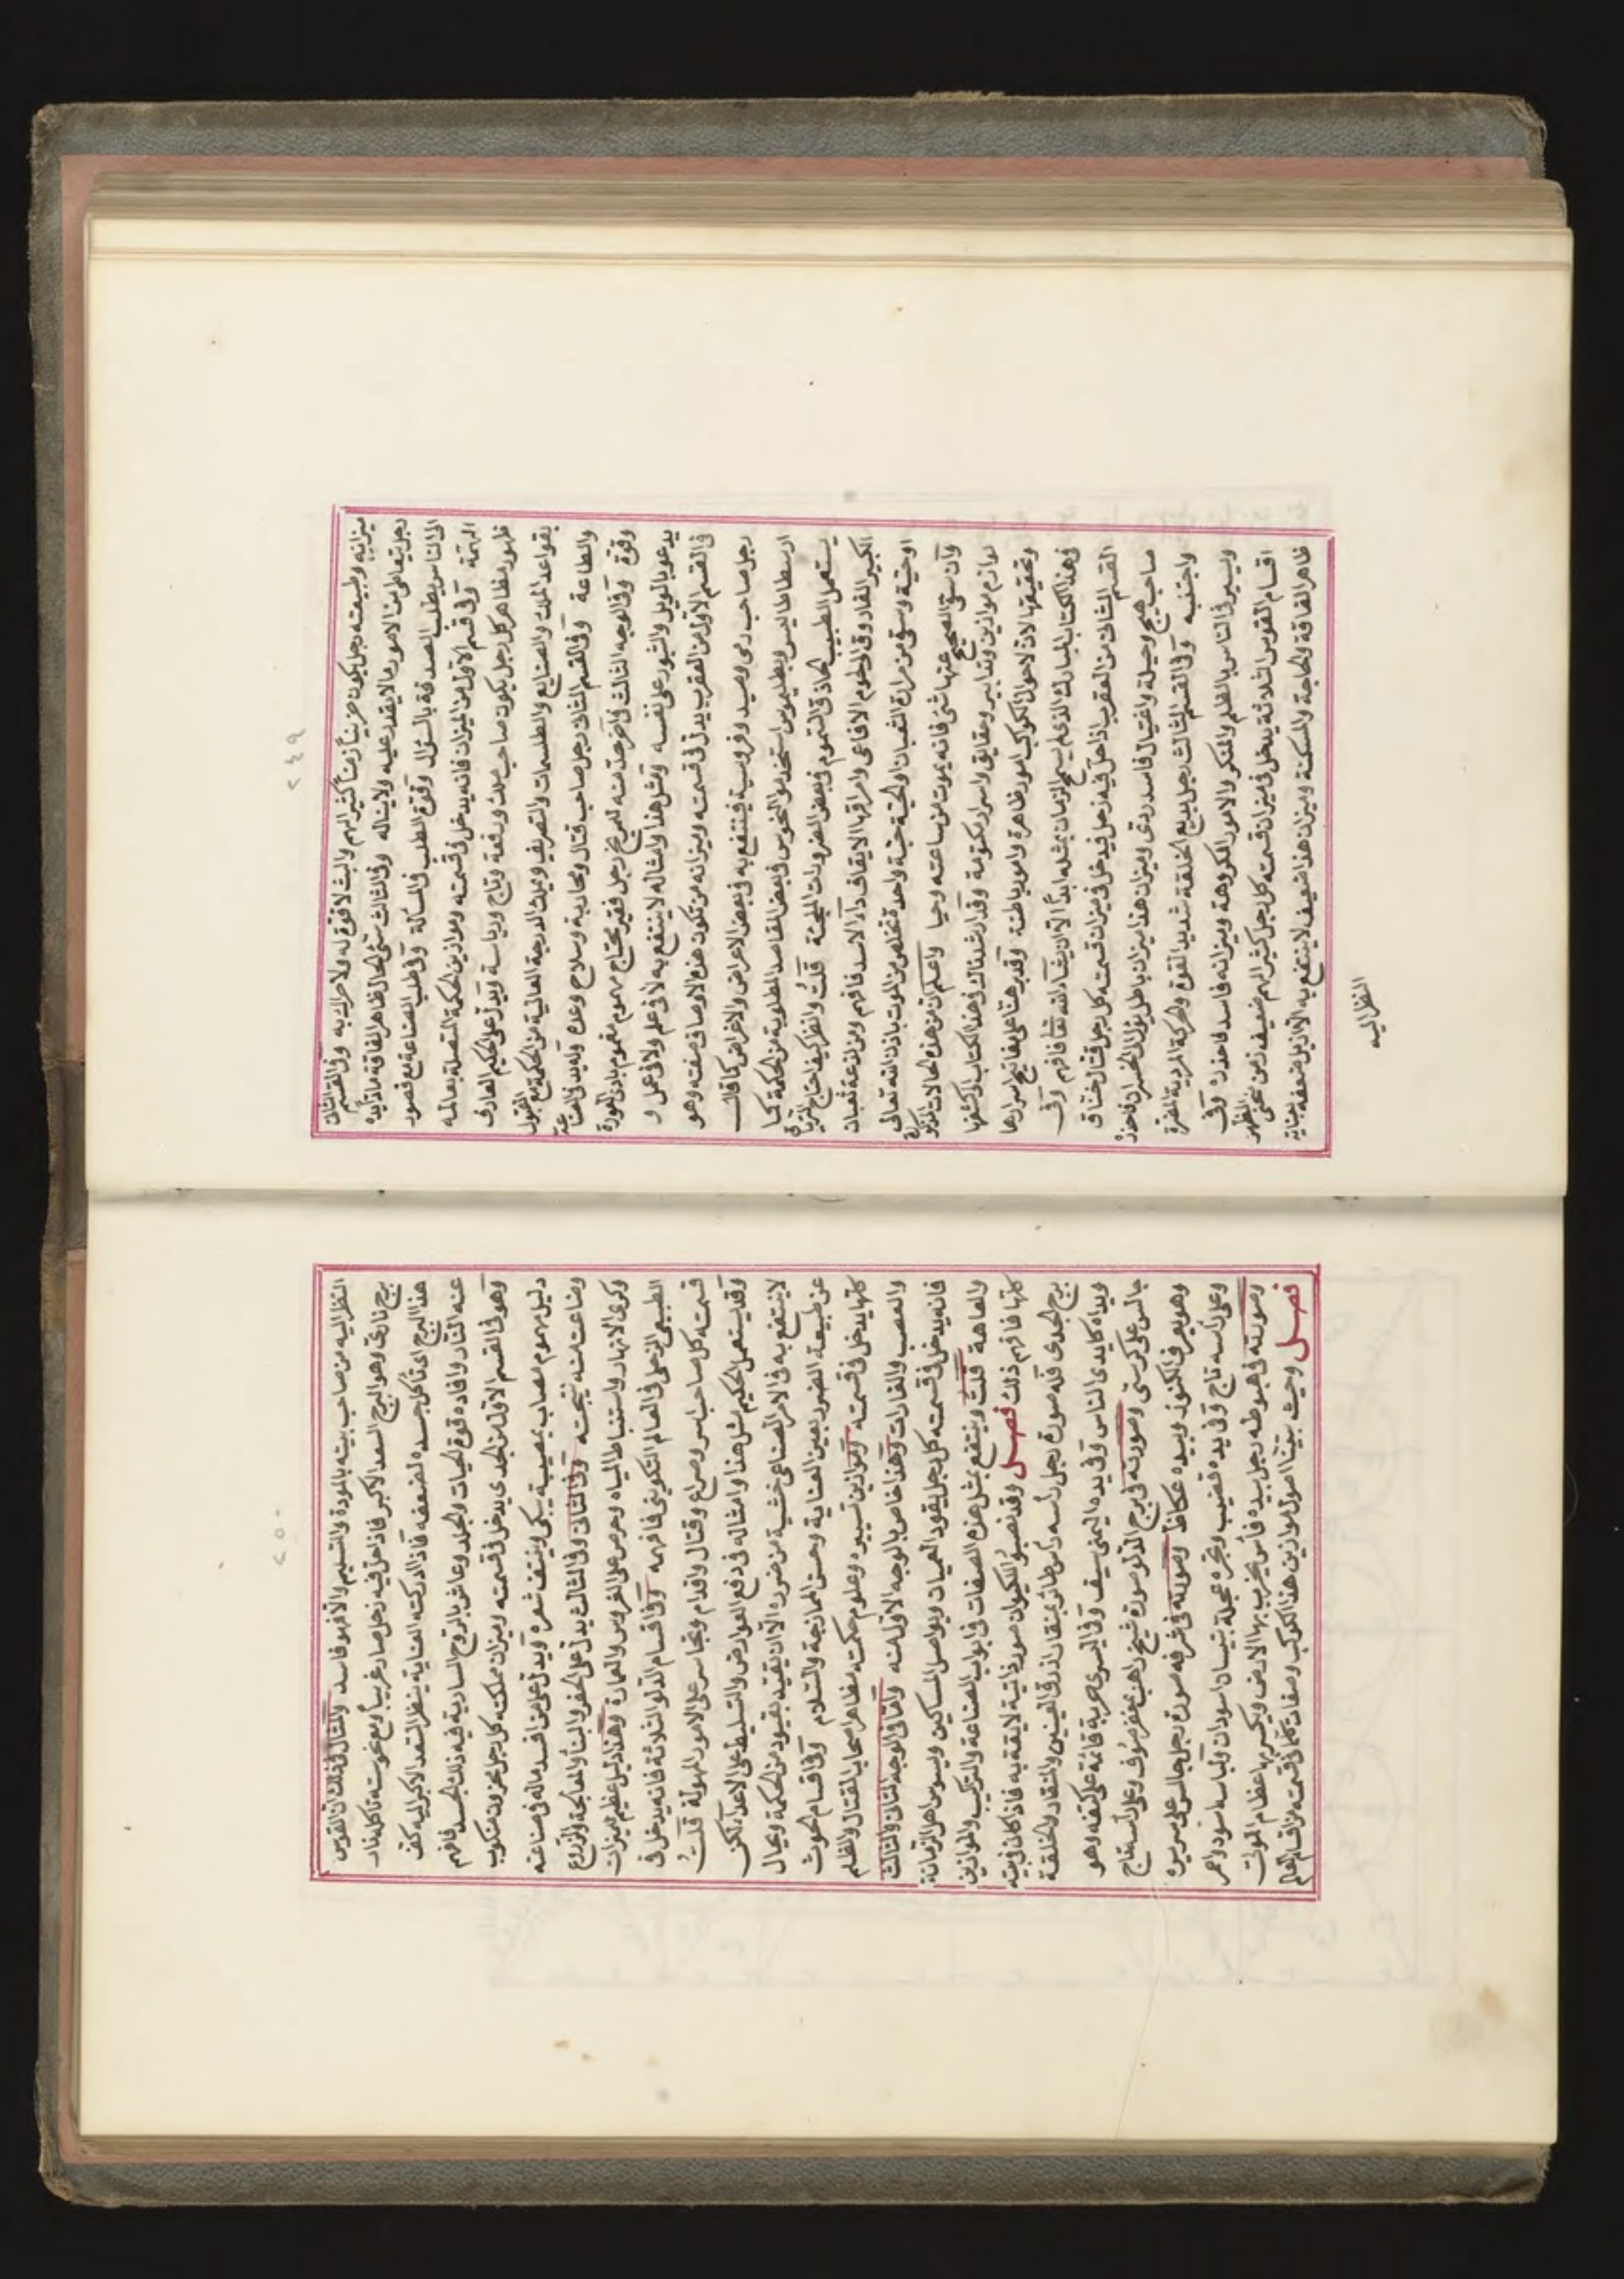 ٢٤٩
ميزانه وطبيعته رجل يكون حزيناً زمناً كثير الهم والبث لا قوة له ولا حراك به وفي القسم الثاني
رجل يتعاطى من الامور ما لا يقدر عليه ولا يناله وفي الثالث سيئ الحال ظاهر الفاقة مادّ يده
الى الناس يطلب الصدقة بالسؤال وقوة الطلب في المسألة وفي طلب الصناعة مع قصور
الهمة وفي قسم الاول من الميزان فانه يدخل في قسمته وموازين الحكمة المتصلة بعالمه
ظهور مظاهر كل رجل يكون صاحب ملك ورفعة وتاج ورياسة ويدل على الحكيم العارف
بقواعد الملك والصنايع والطلسمات والتصريف ونيل الدرجة العالية من الحكمة مع القبول
والطاعة وفي القسم الثاني رجل صاحب قتال ومحاربة وسلاح وعدة وله يد في
وقوة وفي الوجه الثالث في آخر حد منه للمريخ رجل فقير محتاج مهموم مغموم بادي العورة
يدعو بالويل والثبور على نفسه ومثل هذا وامثاله لا ينتفع به لا في علم ولا في عمل و
في القسم الاول من العقرب يدل في قسمته وميزانه من تكون هذه الاوصاف صفته وهو
رجل صاحب رمي وصيد وفروسية فينتفع به في بعض الاعراض والاغراض كما قال
ارسطاطاليس وبطليموس استخدموا النحوس في بعض المقاصد المطلوبة من الحكمة كما
يستعمل الطبيب الحاذق السموم في بعض الضرورات الملجئة قلت وانظر كيف احتاج الترياق
الكبير الفاروق الى لحوم الافاعي وامراقها لايقاف داء الاسد فافهم ومن لدغه ثعبان
او حية وسقي من مرارة الثعبان او الحية حبة واحدة تخلص من الموت باذن الله تعالى
وان سقي الصحيح عنها شئ فانه يموت من ساعته وحيا واعلم ان من هذه الحالات المذكورة
لوازم موازين وتدابير وحقايق واسرار مكتومة وقد ارشدناك في هذا الكتاب الى كشفها
وتحقيقها لان لاحوال الكواكب امور ظاهرة وامور باطنة وقد برهنا على مفاتيح اسرارها
في هذا الكتاب المبارك الذي لم يسمح الزمان بمثله ابداً الا ان يشاء الله تعالى فافهم وفي
القسم الثاني من العقرب اذا حل فيه زحل فيدخل في ميزان قسمته كل رجل قتال خناق
صاحب هيج وحيلة واغتيال فاسد ردي وميزان هذا ميزان باطل يؤل الى الخسران فاحذر
واجتنبه وفي القسم الثالث رجل بديع الخلقة شديد القوة والحركة المردية المضرة
ويسير في الناس بالظلم والمنكر والامور المكروهة وميزانه فاسد فاحذر وفي
اقسام القوس الثلاثة يدخل في ميزان قسمته كل رجل كثير الهم ضعيف زمن منحني الظهر
ظاهر الفاقة والحاجة والمسكنة وميزان هذا ضعيف لا ينتفع به الا ان يزيل ضعفه بعناية
النظر اليه
٢٥٠
النظر اليه من صاحب بيته بالمودة والتسليم والا فهو فاسد والمثال في ذلك ان القوس
برج ناري وهو البرج السعد الاكبر فاذا حل فيه زحل صار غريبا ومع نحوسته تأكله نار
هذا البرج اي تأكل جسده لضعفه فاذا ادركته العناية بنظر السعد الاكبر اليه كف
عنه النار وافاده قوة الحيات والجلد وعاش بالروح السارية فيه ذلك الجسد فافهم
وهو في القسم الاول من الجدي يدخل في قسمته وميزان مملكته كل رجل محزون منكوب
ذليل مهموم مصاب بمصيبة يبكي وينتف شعره ويدل على من افسد ماله في صناعته
وضاعت منه نتيجته وفي الثاني وفي الثالث يدل على الحفر والبناء والمعالجة والزروع
وكرى الانهار واستنباط المياه وحرص على الغروس والعمارة وهذا دليل عظيم لميزان
الطبيعي الزحلي في العالم التكويني فافهمه وفي اقسام الدلو الثلاثة فانه يدخل في
قسمته كل صاحب اسر وصراع وقتال واقدام وتجاسر على الامور المهولة قلت
وقد يستعمل الحكيم مثل هذا وامثاله في دفع العوارض والتسليط على الاعداء لكن
لا ينتفع به في الامر الصناعي خشية من ضرره الا ان يقيد بقيود من الحكمة ويحال
عن طبيعة الضرور بعين العناية وحسن الممازجة والسلام وفي اقسام الحوت
كلها يدخل في قسمته وموازين تسييره وعلوم حكمته مظاهر اصحاب القتال والظلم
والغصب والغارات وهذا خاص بالوجه الاول منه واما في الوجه الثاني والثالث
فانه يدخل في قسمته كل رجل يقود العميان ويواصل المساكين ويسوس اهل الزمانة
والعاهة قلت وينتفع بمثل هذه الصفات في ابواب الصناعة والتراكيب والموازين
كلها فافهم ذلك فصل وقد نصبوا للكيوان صورة ذاتية لايقة به فاذا كان في بيته
برج الجدي فله صورة رجل رأسه رأس طائر بمنقار ازرق العينين والمنقار والخلقة
ويداه كايدي الناس وفي يده اليمنى سيف وفي اليسرى حربة قائمة على كتفه وهو
جالس على كرسي وصورته في برج الدلو صورة شيخ راهب وعلى رأسه تاج
وهو يعرف الكنوز وبيده عكاظ وصورته في شرفه صورة رجل جالس على سريره
وعلى رأسه تاج وفي يده قضيب وتجره عجلة بتيسان اسودان ولباسه اسود واحمر
وصورته في هبوطه رجل بيده فأس يخرب بها الارض ويكسر بها عظام الموت
فصل وحيث بيّنا اصول موازين هذا الكوكب وصفات من اقسام العالم